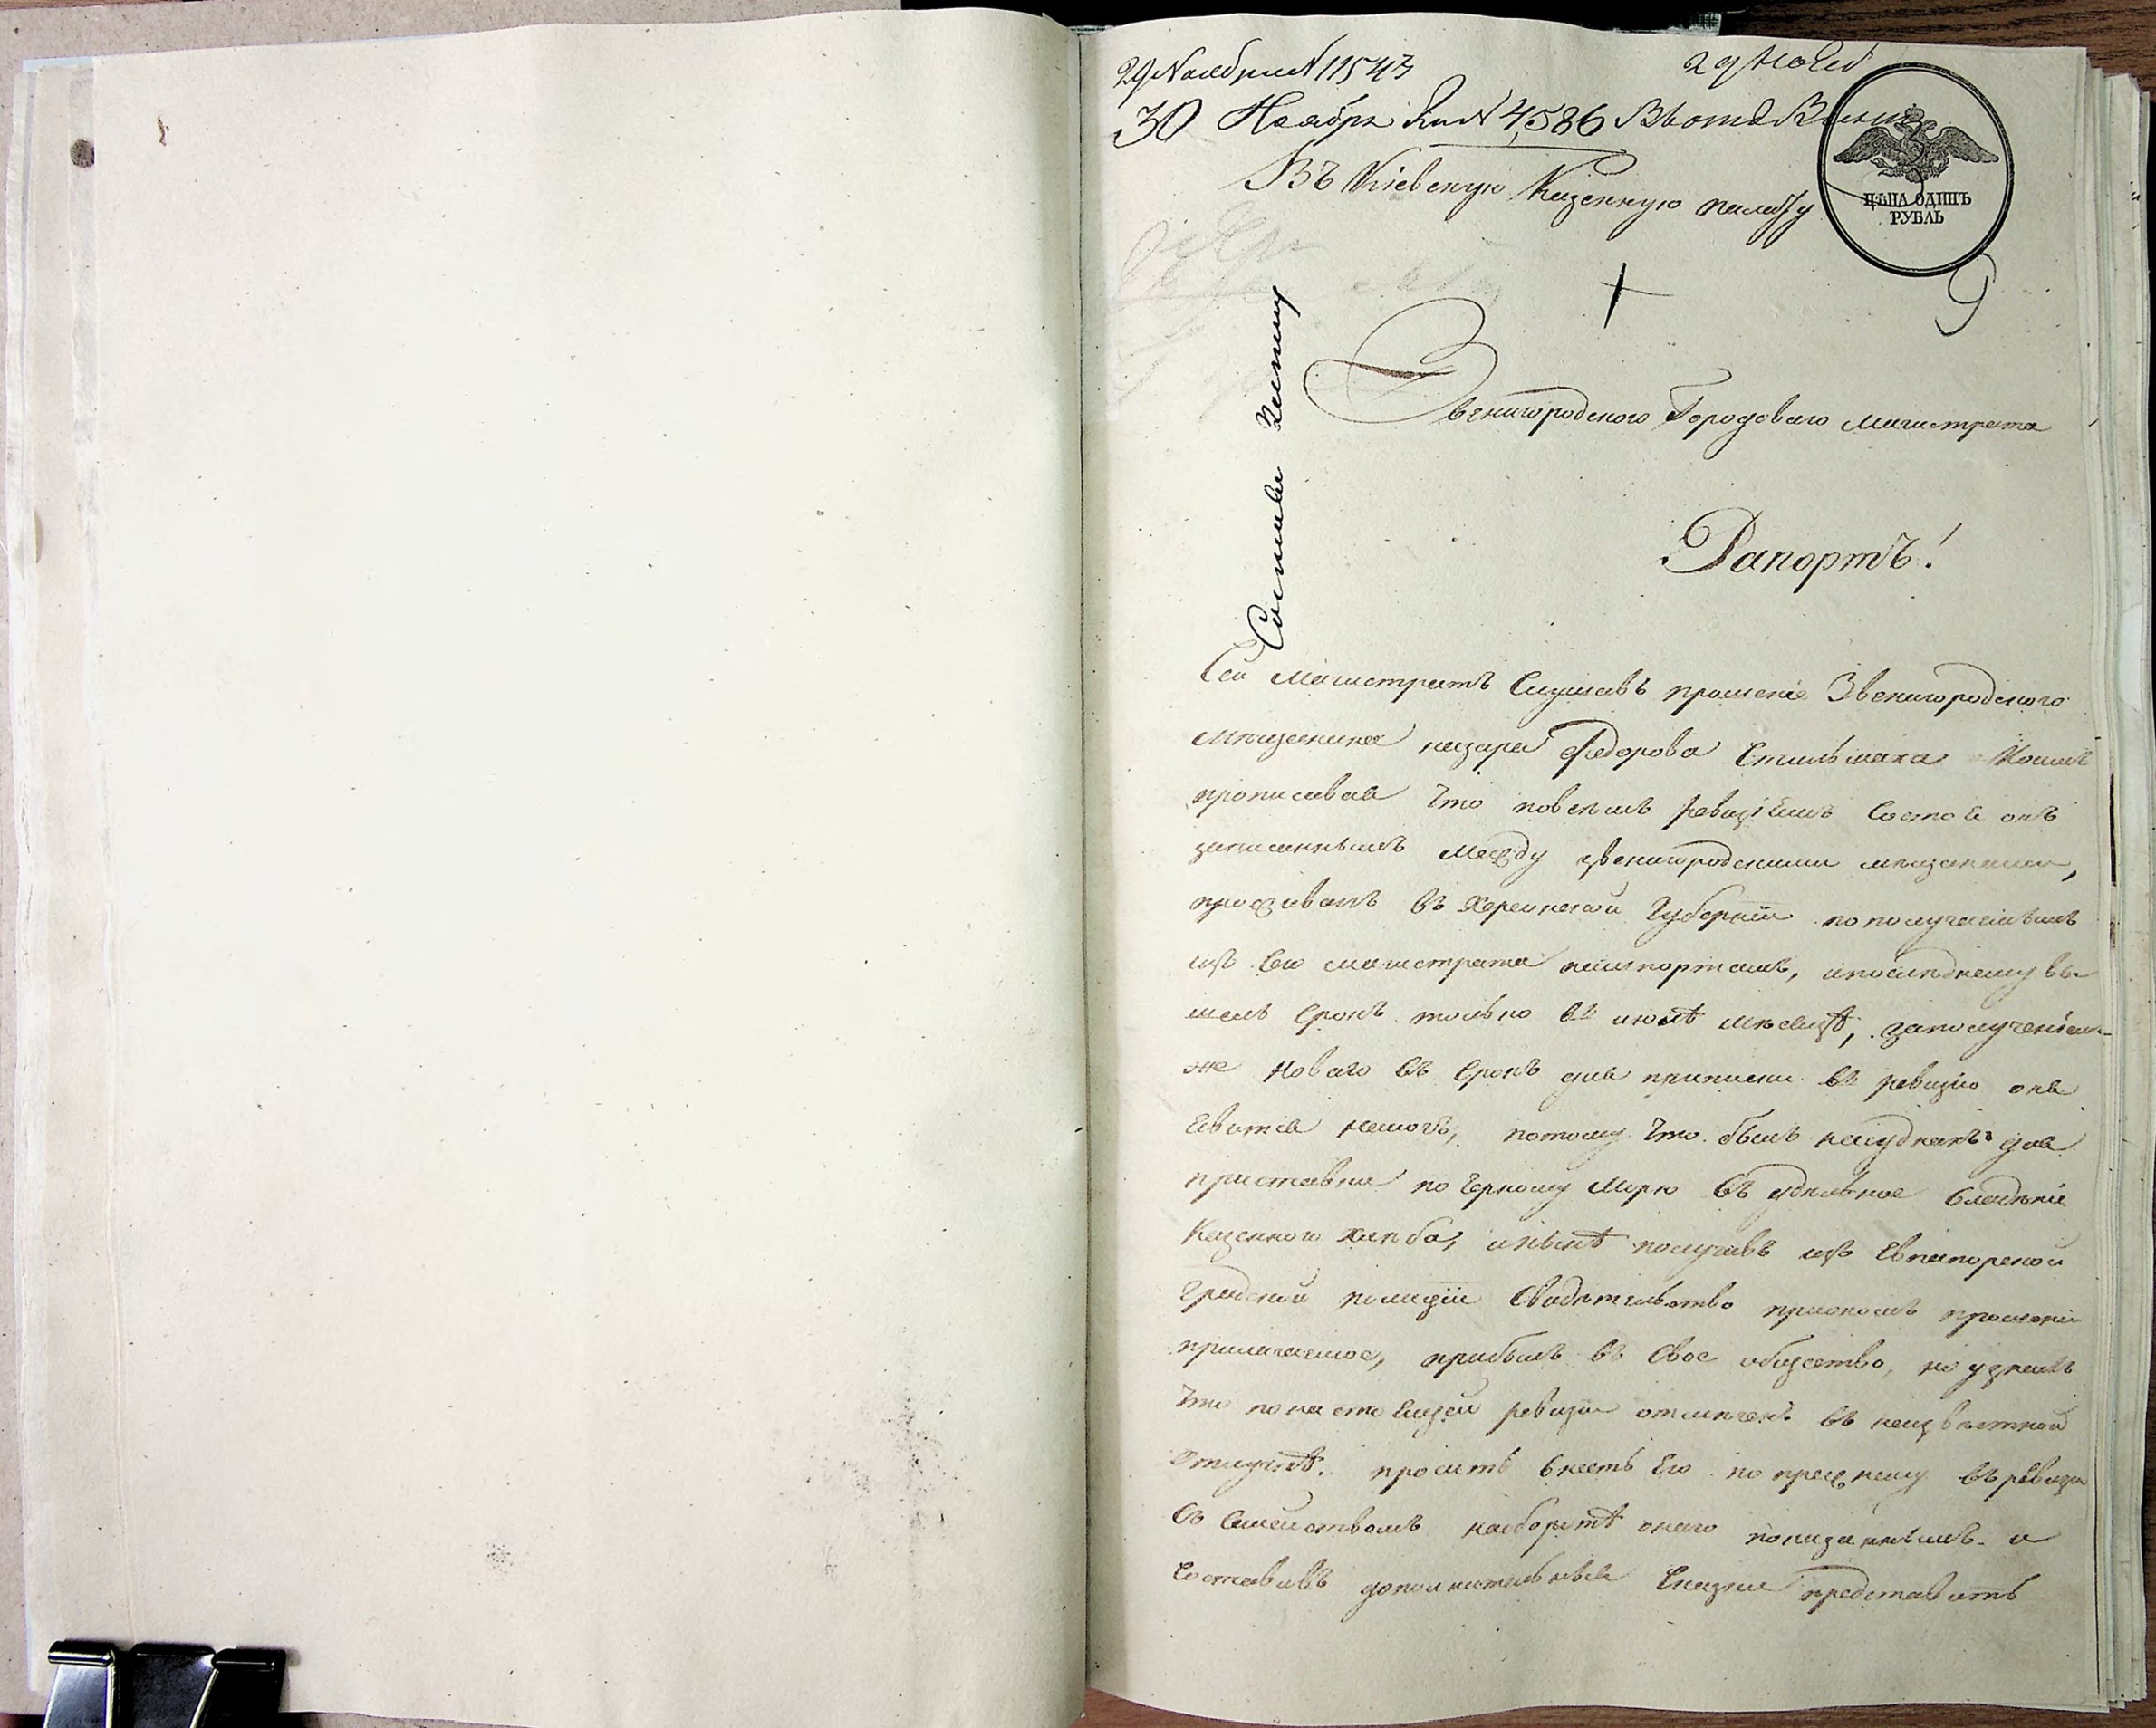 29 Ноября N 11543
29 Нояб
30 Ноября N 4,586
Въ Кіевскую Казенную палату
ЦѢНА ОДИНЪ
РУБЛЬ
Звенигородского Городоваго магистрата
Рапортъ!
Сей Магистратъ Слушавъ прошеніе Звенигородского
мѣщанина назара Федорова Стильмаха
прописывая что
записаннымъ между звенигородскими мѣщанами,
проживалъ въ Херсонской Губерніи по полученнымъ
изъ Сего магистрата пашпортамъ, ипослѣднему вы-
шелъ Срокъ только въ июлѣ мѣсяцѣ, заполученіемъ-
же Новаго въ Срокъ для приписки въ ревизію онъ
Евится немогъ, потому что былъ насуднахъ для
приставки по Черному Морю въ удѣльное владѣніе
Казенного хлѣба, инынѣ получивъ изъ Евпаторской
Градской полиціи Свидѣтельство приономъ прошеніи
прилагаемое, прибылъ въ Свое общество, но узнавъ
Что по настоЕщей ревизіи отмѣченъ въ неизвѣстной
Отлучкѣ. проситъ внесть Его по прежнему въ ревизію
Съ Семействомъ наоборотѣ онаго показаннымъ и
Составивъ дополнительныя Сказки представить